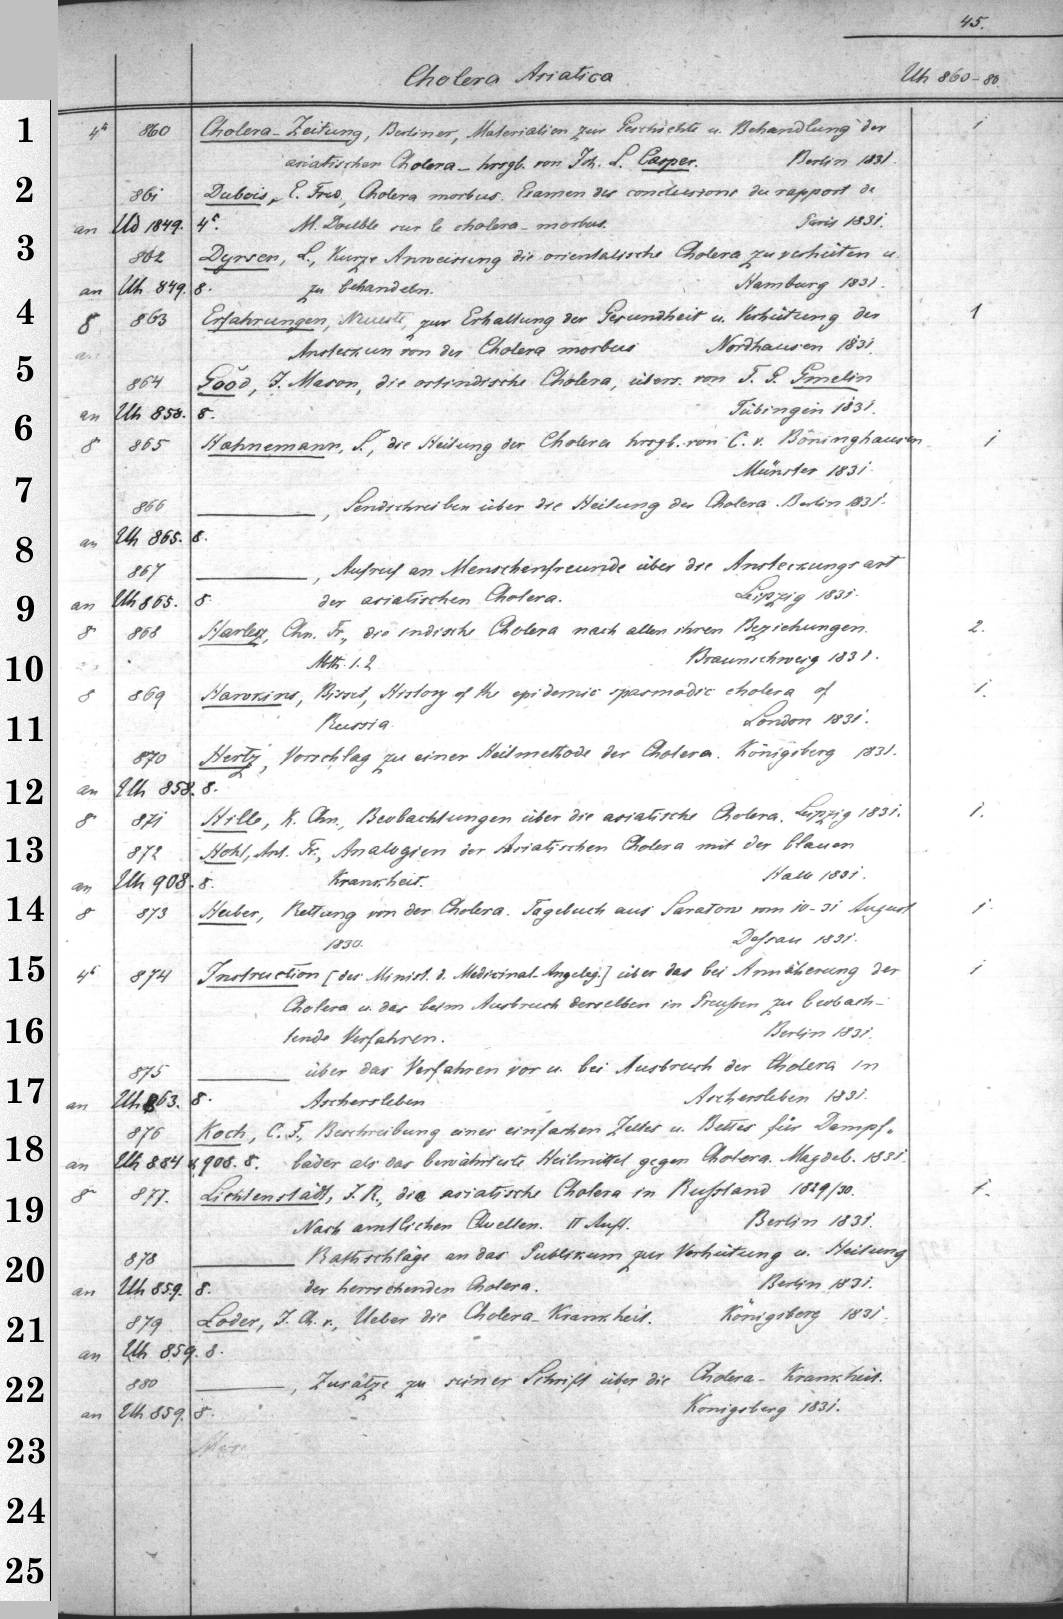 45.
Cholera Asiatica Uh 860-80.
1 4° 860 Cholera-Zeitung, Berliner, Materialien zur Geschichte u. Behandlung der 1
asiatischen Cholera - hrsgb. von Joh. L. Casper. Berlin 1831.
2 861 Dubois, E. Fred, Cholera morbus. Examen des conclusions du rapport de
an Ud 1849. 4°. M. Double sur le cholera-morbus. Paris 1831.
3 862 Dyrsen, L., Kurze Anweisung die orientalische Cholera zu verhüten u.
an Uh 849. 8. zu behandeln. Hamburg 1831.
4 8 863 Erfahrungen, Neueste, zur Erhaltung der Gesundheit u. Verhütung der 1
an Ansteckun von der Cholera morbus Nordhausen 1831.
5 864 Good, J. Mason, die ostindische Cholera, übers. von F. G. Gmelin
an Uh 858. 8. Tübingen 1831.
6 8 865 Hahnemann, S., die Heilung der Cholera hrsgb. von C. v. Böninghausen 1
Münster 1831.
7 866 ———, Sendschreiben über die Heilung der Cholera. Berlin 1831.
8 an Uh 865. 8.
867 ———, Aufruf an Menschenfreunde über die Ansteckungsart
9 an Uh 865. 8. der asiatischen Cholera. Leipzig 1831.
8 868 Harless, Chn. Fr., die indische Cholera nach allen ihren Beziehungen. 2.
10 Abth. 1. 2. Braunschweig 1831.
8 869 Hawkins, Bisset, History of the epidemic spasmodic cholera of 1.
11 Russia. London 1831.
870 Hertz, Vorschlag zu einer Heilmethode der Cholera. Königsberg 1831.
12 an Uh 858. 8.
8 871 Hille, K. Chn., Beobachtungen über die asiatische Cholera. Leipzig 1831. 1.
13 872 Hohl, Ant. Fr., Analogien der Asiatischen Cholera mit der blauen
an Uh 908. 8. Krankheit. Halle 1831.
14 8 873 Huber, Rettung von der Cholera. Tagebuch aus Saratow vom 10-31 August 1
1830. Dessau 1831.
15 4° 874 Instruction [des Minist. d. Medicinal-Angeleg.] über das bei Annäherung der 1
Cholera u. das beim Ausbruch derselben in Preußen zu beobach-
16 tende Verfahren. Berlin 1831.
875 ——— über das Verfahren vor u. bei Ausbruch der Cholera in
17 an Uh 863. 8. Aschersleben Aschersleben 1831.
876 Koch, C. F., Beschreibung eines einfachen Zeltes u. Bettes für Dampf-
18 an Uh 884 u. 908. 8. bäder als das bewährteste Heilmittel gegen Cholera. Magdeb. 1831.
8 877. Lichtenstädt, J. R., die asiatische Cholera in Russland 1829/30. 1.
19 Nach amtlichen Quellen. II Aufl. Berlin 1831.
878 ——— Rathschläge an das Publikum zur Verhütung u. Heilung
20 an Uh 859. 8. der herrschenden Cholera. Berlin 1831.
21 879 Loder, J. Ch. v., Ueber die Cholera-Krankheit. Königsberg 1831.
an Uh 859. 8.
22 880 ———, Zusätze zu seiner Schrift über die Cholera-Krankheit.
an Uh 859. 8. Königsberg 1831.
23
24
25